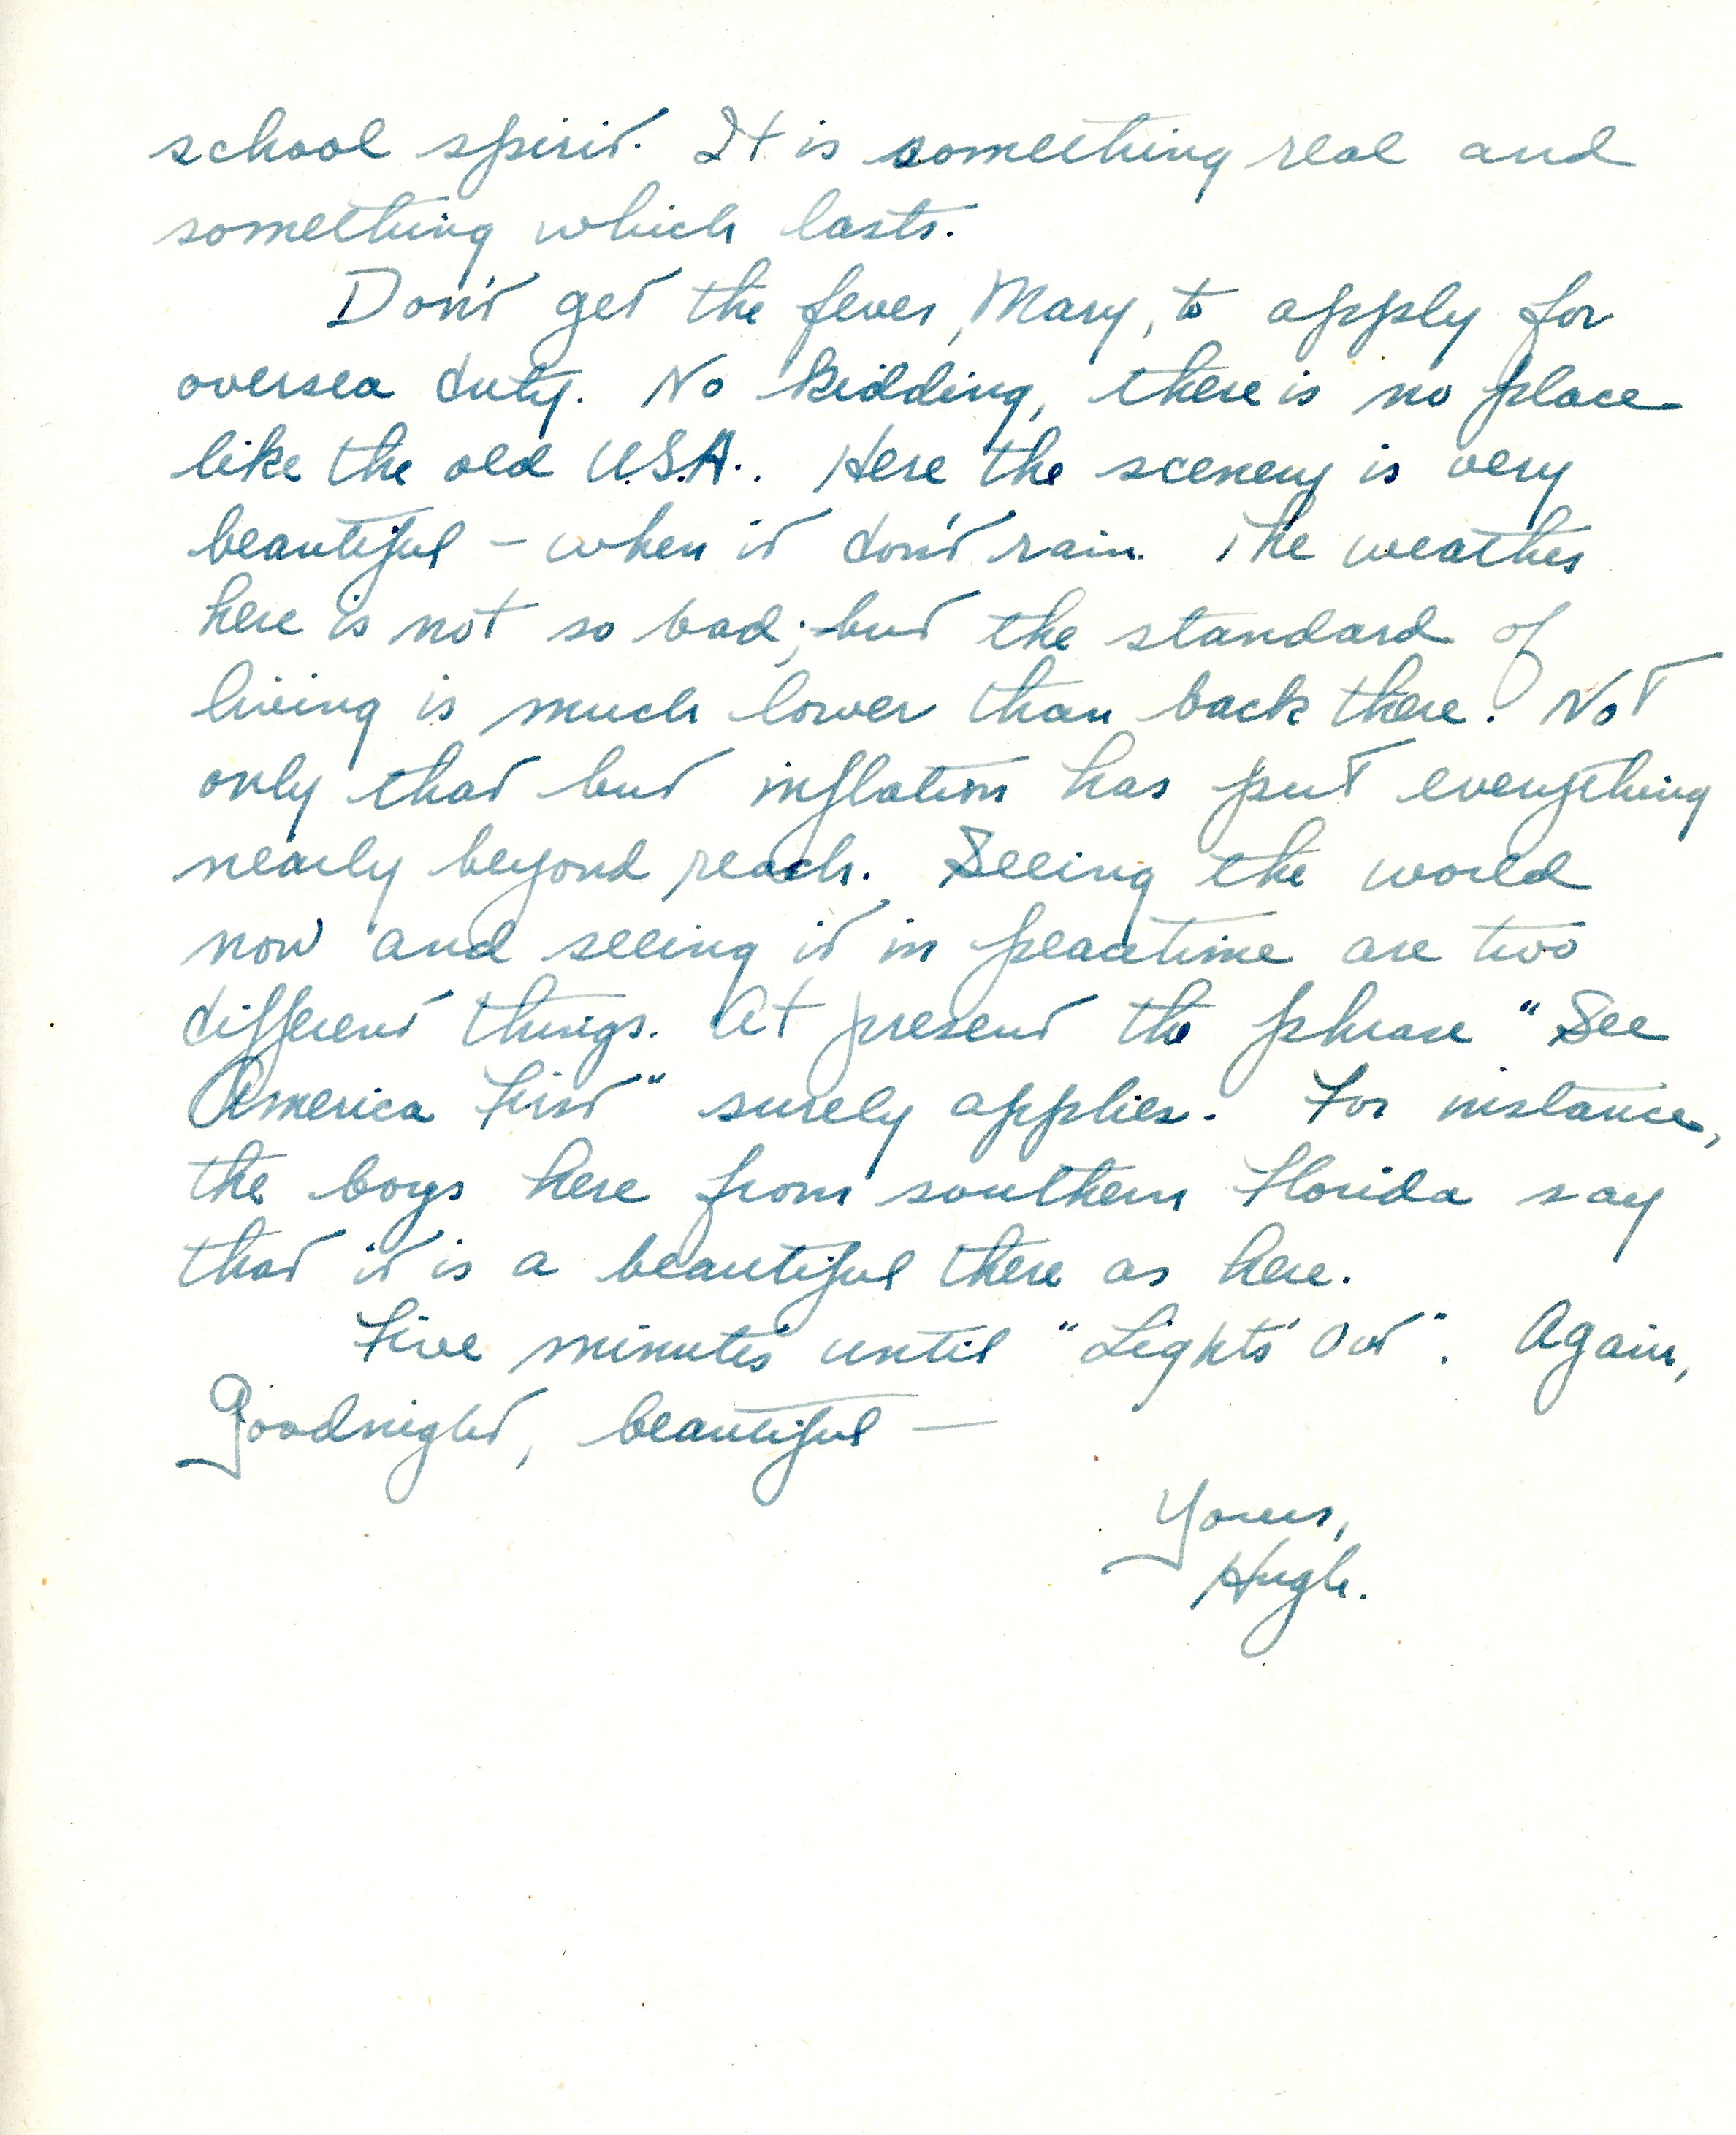 school spirit. It is something real and
something which lasts.
Don't get the fever, Mary, to apply for
oversea duty. No kidding, there is no place
like the old U.S.A.. Here the scenery is very
beautiful - when it don't rain. The weather
here is not so bad; but the standard of
living is much lower than back there. Not
only that but inflation has put everything
nearly beyond reach. Seeing the world
now and seeing it in peacetime are two
different things. At present the phrase "See
America First" surely applies. For instance,
the boys here from southern Florida say
that it is a beautiful there as here.
Five minutes until "Lights Out". Again,
Goodnight, beautiful —
Yours,
Hugh.